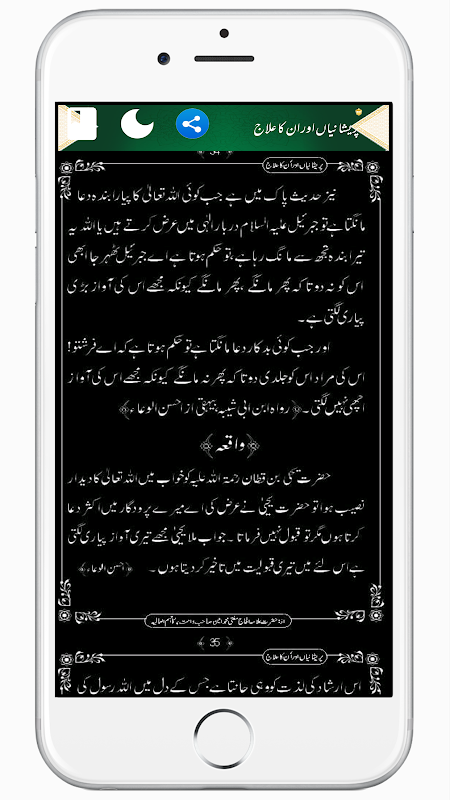 پریشانیاں اور ان کا علاج
34
پریشانیاں اور اُن کا علاج
نیز حدیث پاک میں ہے جب کوئی اللہ تعالیٰ کا پیارا بندہ دعا
مانگتا ہے تو جبرئیل علیہ السلام دربار الٰہی میں عرض کرتے ہیں یا اللہ یہ
تیرا بندہ تجھ سے مانگ رہا ہے، تو حکم ہوتا ہے اے جبرئیل ٹھہر جا ابھی
اس کو نہ دو تا کہ پھر مانگے، پھر مانگے کیونکہ مجھے اس کی آواز بڑی
پیاری لگتی ہے۔
اور جب کوئی بدکار دعا مانگتا ہے تو حکم ہوتا ہے کہ اے فرشتو!
اس کی مراد اس کو جلدی دو تا کہ پھر نہ مانگے کیونکہ مجھے اس کی آواز
اچھی نہیں لگتی۔ ﴿رواہ ابن ابی شیبہ بیہقی از احسن الوعاء﴾
﴿واقعہ﴾
حضرت یحیٰی بن قطان رحمۃ اللہ علیہ کو خواب میں اللہ تعالیٰ کا دیدار
نصیب ہوا تو حضرت یحیٰی نے عرض کی اے میرے پروردگار میں اکثر دعا
کرتا ہوں مگر تو قبول نہیں فرماتا۔ جواب ملا یحیٰی مجھے تیری آواز پیاری لگتی
ہے اس لئے میں تیری قبولیت میں تاخیر کر دیتا ہوں۔ ﴿احسن الوعاء﴾
از: حضرت علامہ الحاج مفتی محمد امین صاحب دامت برکاتہم العالیہ
35
پریشانیاں اور اُن کا علاج
اس ارشاد کی لذت کو وہی جانتا ہے جس کے دل میں اللہ رسول کی